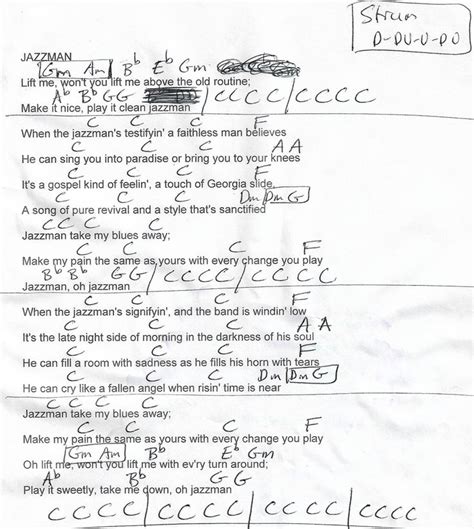 Strum
D-DU-U-DU
JAZZMAN
Gm Am Bb Eb Gm
Lift me, won't you lift me above the old routine;
Ab Bb G G / C C C C / C C C C
Make it nice, play it clean jazzman
C C F
When the jazzman's testifyin' a faithless man believes
C C A A
He can sing you into paradise or bring you to your knees
C C F
It's a gospel kind of feelin', a touch of Georgia slide,
C C Dm Dm G
A song of pure revival and a style that's sanctified
C C C C
Jazzman take my blues away;
C C C F
Make my pain the same as yours with every change you play
Bb Bb G G / C C C C / C C C C
Jazzman, oh jazzman
C C C F
When the jazzman's signifyin', and the band is windin' low
C C A A
It's the late night side of morning in the darkness of his soul
C C C F
He can fill a room with sadness as he fills his horn with tears
C C C Dm Dm G
He can cry like a fallen angel when risin' time is near
C C C C
Jazzman take my blues away;
C C C F
Make my pain the same as yours with every change you play
Gm Am Bb Eb Gm
Oh lift me, won't you lift me with ev'ry turn around;
Ab Bb G G
Play it sweetly, take me down, oh jazzman
C C C C / C C C C / C C C C / C C C C